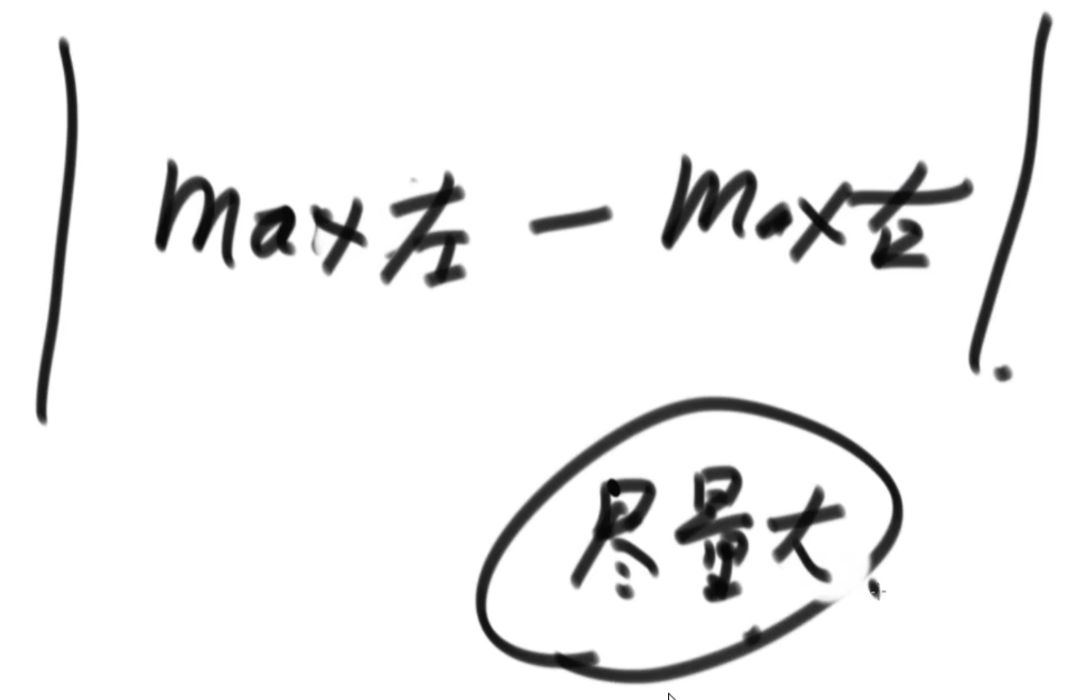 | max左 - max右 |.
尽量大